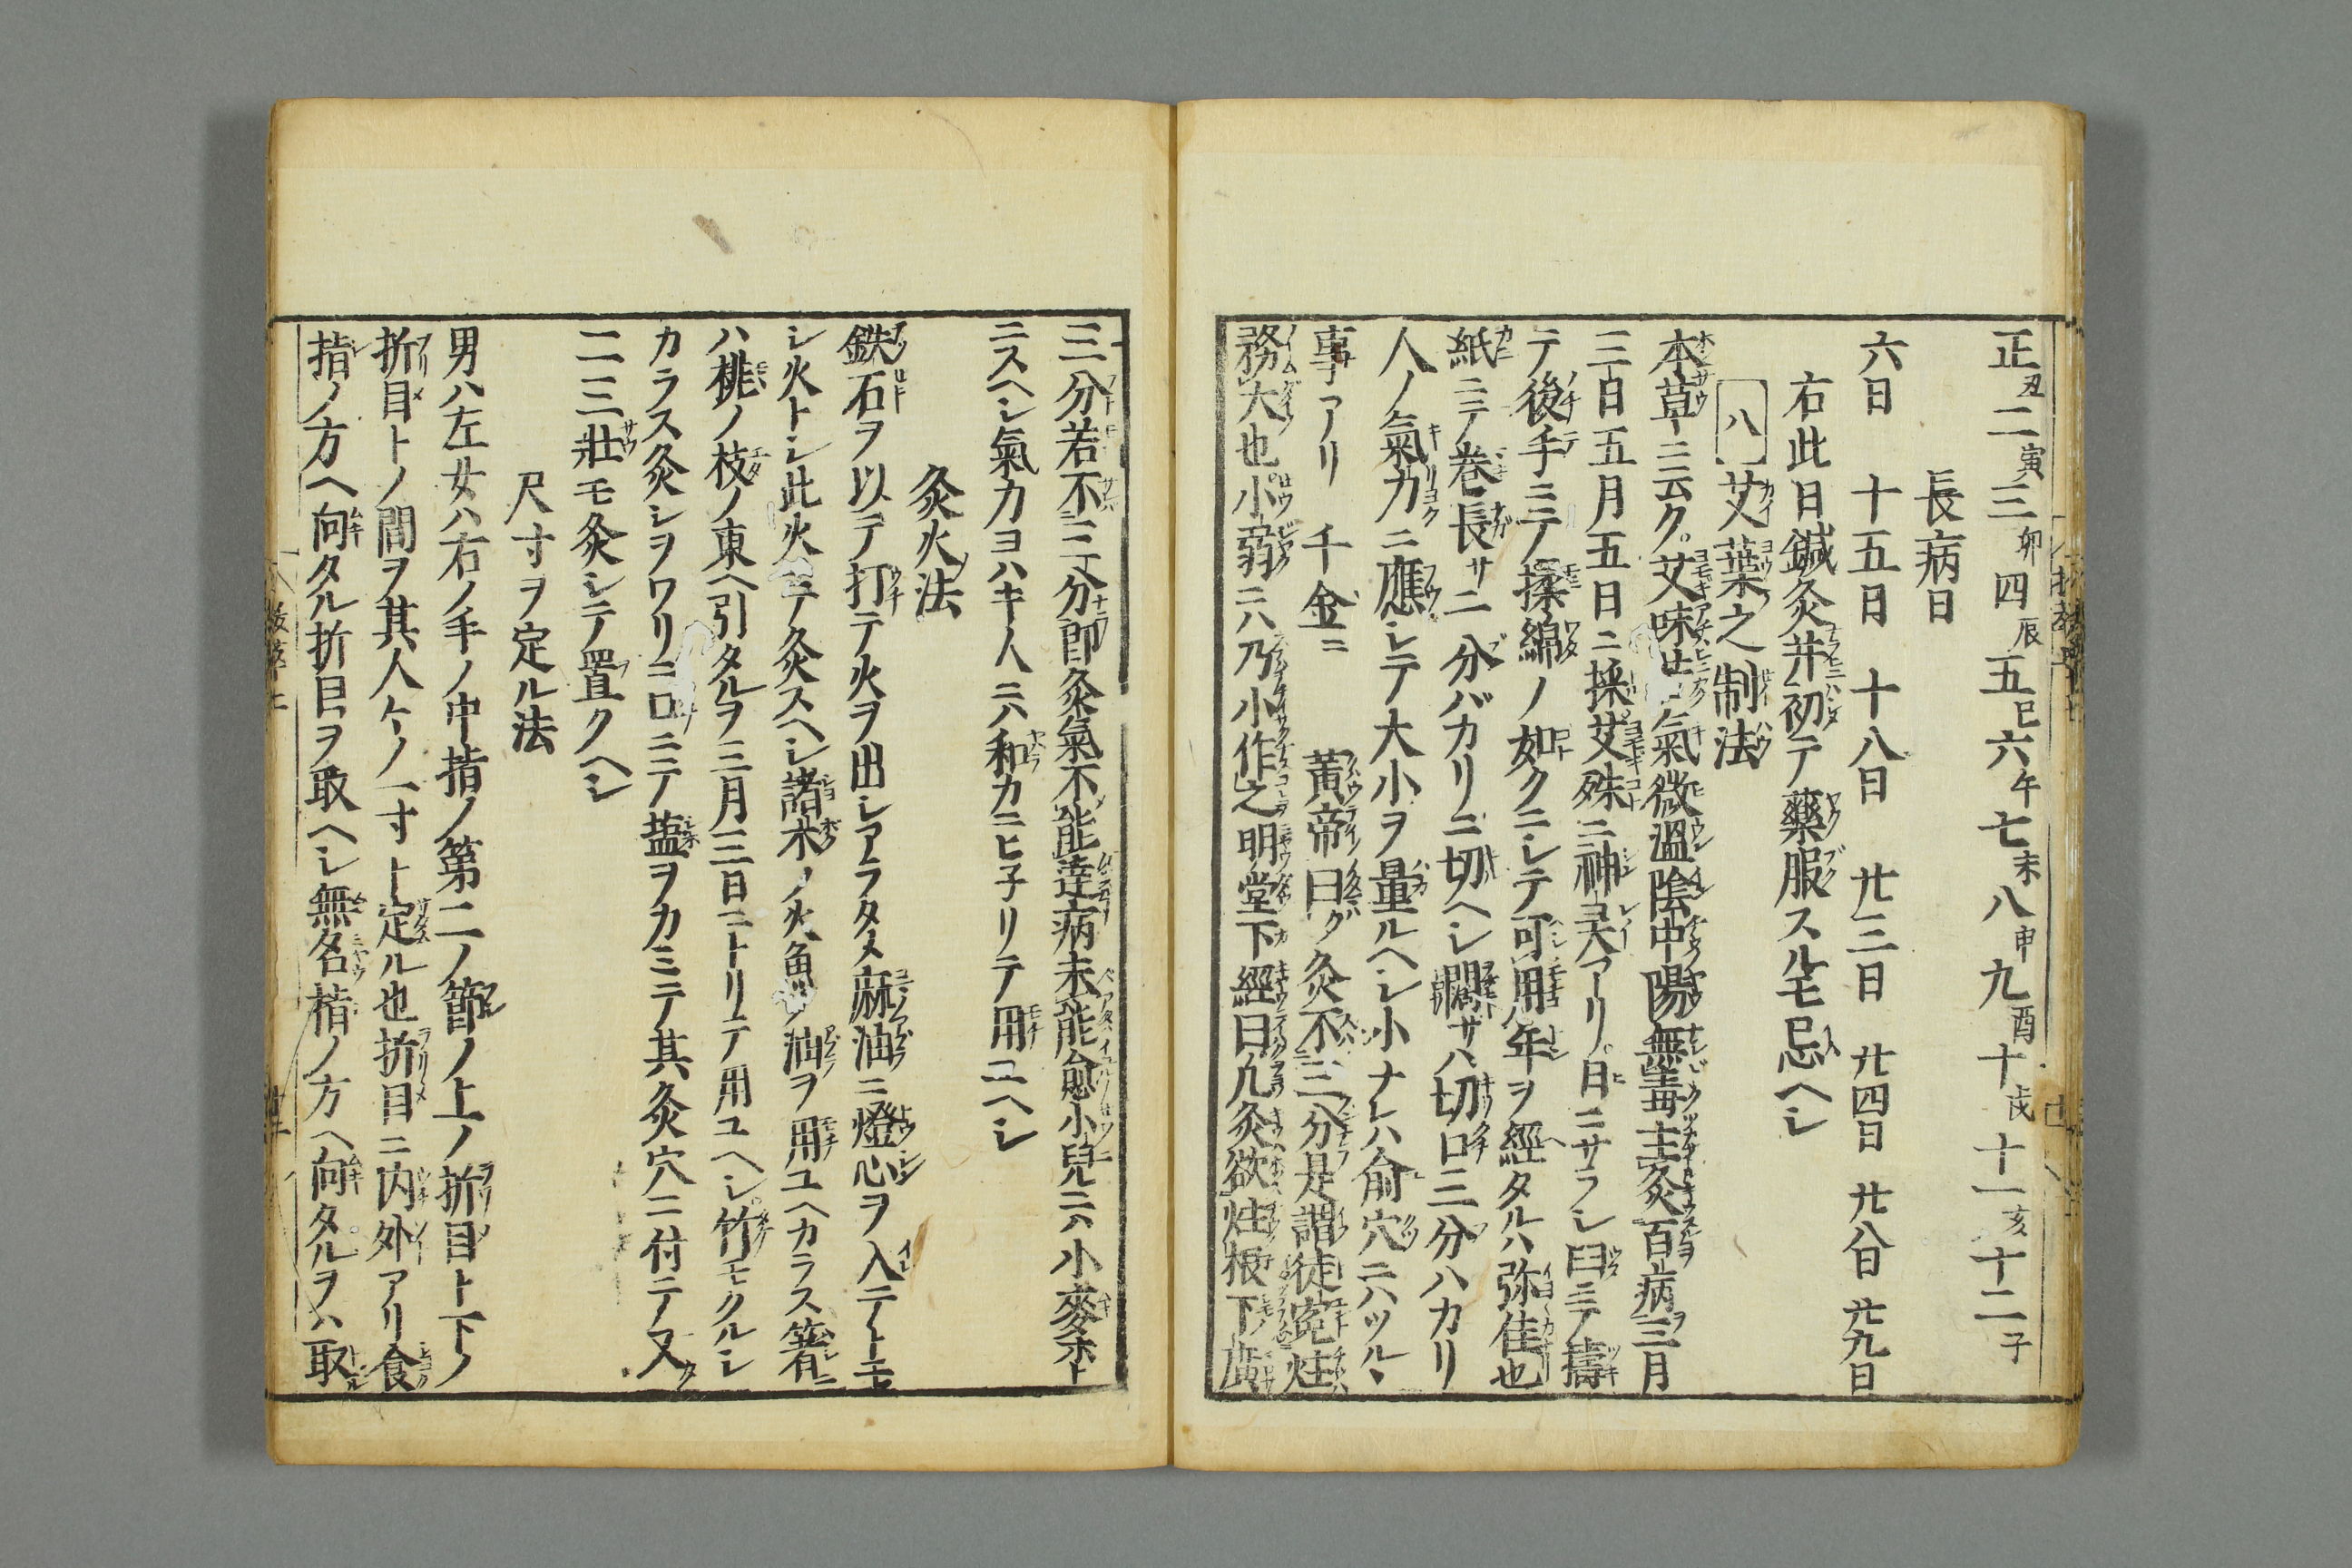 正丑二寅三卯四辰五巳六午七未八申九酉十戌十一亥十二子
長病日
六日 十五日 十八日 廿三日 廿四日 廿八日 廿九日
右此日鍼灸并初テ藥服スルモ忌ヘシ
八 艾葉之制法
本草ニ云ク艾味 氣微溫陰中陽無毒主灸百病三月
三日五月五日ニ採艾殊ニ神灵アリ日ニサラシ臼ニテ擣
テ後手ニテ揉綿ノ如クニシテ可用年ヲ經タルハ弥佳也
紙ニテ巻長サ二分バカリニ切ヘシ濶サハ切口三分ハカリ
人ノ氣力ニ應シテ大小ヲ量ルヘシ小ナレハ俞穴ニハツルヽ
事アリ 千金ニ 黃帝曰ク灸不三分是謂徒寃炷
務大也小弱ニハ乃小作之明堂下經曰凢灸欲炷根下廣
三分若不三分即灸氣不能達病未能愈小兒ニハ小麥ホト
ニスヘシ氣力ヨハキ人ニハ和カニヒ子リテ用ユヘシ
灸火法
鉄石ヲ以テ打テ火ヲ出シアラタメ麻油ニ燈心ヲ入テトモ
シ火トシ此火ニテ灸スヘシ諸木ノ火魚ノ油ヲ用ユヘカラス箸ニ
ハ桃ノ枝ノ東ヘ引タルヲ三月三日ニトリテ用ユヘシ竹モクルシ
カラス灸シヲワリニ口ニテ塩ヲカミテ其灸穴ニ付テ又
二三壯モ灸シテ置クヘシ
尺寸ヲ定ル法
男ハ左女ハ右ノ手ノ中指ノ第二ノ節ノ上ノ折目ト下ノ
折目トノ間ヲ其人々ノ一寸ト定ル也折目ニ内外アリ食
指ノ方ヘ向タル折目ヲ取ヘシ無名指ノ方ヘ向タルヲハ取